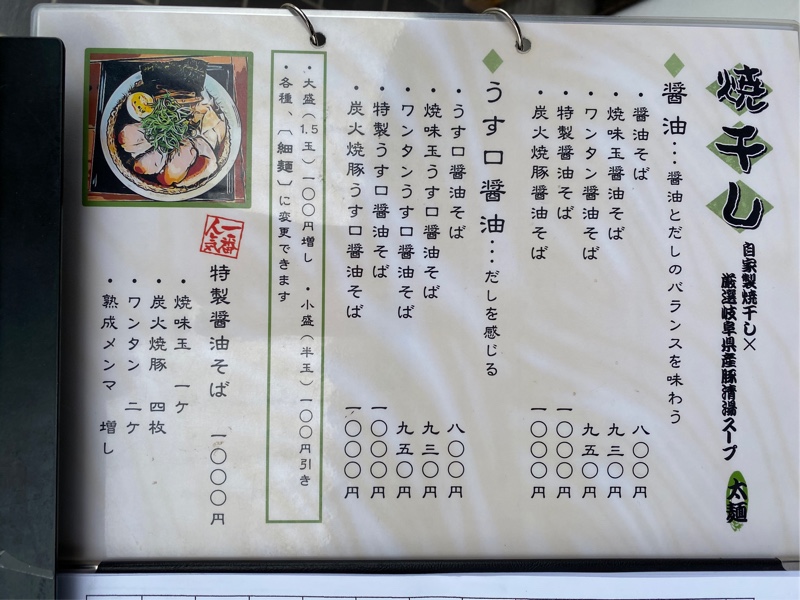 焼干し
自家製焼干し×
厳選岐阜県産豚清湯スープ
太麺
醤油…醤油とだしのバランスを味わう
・醤油そば 八〇〇円
・焼味玉醤油そば 九三〇円
・ワンタン醤油そば 九五〇円
・特製醤油そば 一〇〇〇円
・炭火焼豚醤油そば 一〇〇〇円
うす口醤油…だしを感じる
・うす口醤油そば 八〇〇円
・焼味玉うす口醤油そば 九三〇円
・ワンタンうす口醤油そば 九五〇円
・特製うす口醤油そば 一〇〇〇円
・炭火焼豚うす口醤油そば 一〇〇〇円
・大盛(1.5玉)一〇〇円増し ・小盛(半玉)一〇〇円引き
・各種、〔細麺〕に変更できます
一番人気
特製醤油そば 一〇〇〇円
・焼味玉 一ケ
・炭火焼豚 四枚
・ワンタン 二ケ
・熟成メンマ 増し